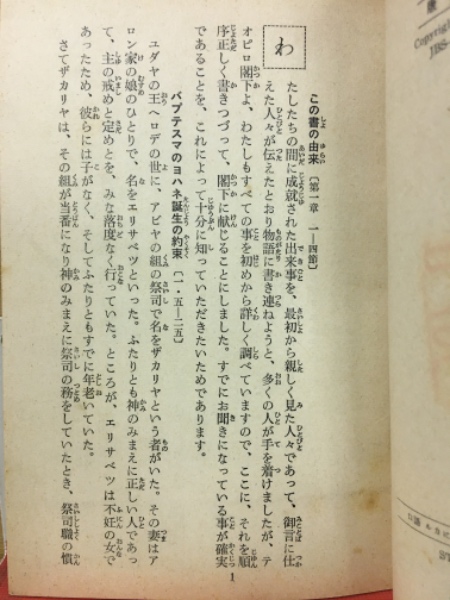 この書の由来〔第一章 一―四節〕
わたしたちの間に成就された出来事を、最初から親しく見た人々であって、御言に仕
えた人々が伝えたとおり物語に書き連ねようと、多くの人が手を着けましたが、テ
オピロ閣下よ、わたしもすべての事を初めから詳しく調べていますので、ここに、それを順
序正しく書きつづって、閣下に献じることにしました。すでにお聞きになっている事が確実
であることを、これによって十分に知っていただきたいためであります。
バプテスマのヨハネ誕生の約束〔一・五―二五〕
ユダヤの王ヘロデの世に、アビヤの組の祭司で名をザカリヤという者がいた。その妻はア
ロン家の娘のひとりで、名をエリサベツといった。ふたりとも神のみまえに正しい人であっ
て、主の戒めと定めとを、みな落度なく行っていた。ところが、エリサベツは不妊の女で
あったため、彼らには子がなく、そしてふたりともすでに年老いていた。
さてザカリヤは、その組が当番になり神のみまえに祭司の務をしていたとき、祭司職の慣
1
Copyright
JBS-